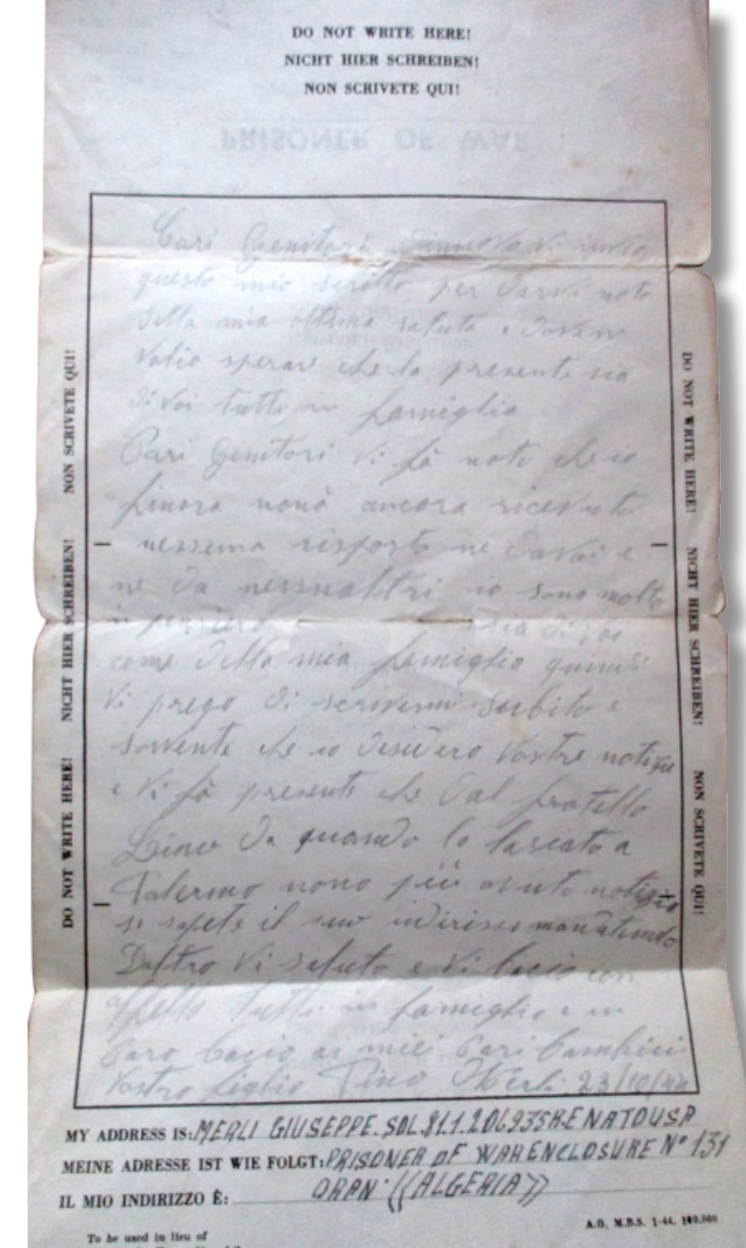 DO NOT WRITE HERE!
NICHT HIER SCHREIBEN!
NON SCRIVETE QUI!
PRISONER OF WAR
Cari Genitori vi invio
questo mio scritto per darvi noto
della mia ottima salute e
voglio sperare che la presente sia
di voi tutti in famiglia
Cari Genitori vi fò noto che io
finora nonò ancora ricevuto
nessuna risposta ne davoi e
ne da nessnaltri io sono molto
in pensiero sia di voi
come della mia famiglia quindi
vi prego di scrivermi subito e
sovente che io desidero vostre notizie
e vi fò presente che dal fratello
Lino da quando lo lasciato a
Palermo nono più avuto notizia
se sapete il suo indirisso mandatimelo
Daltro vi saluto e vi bacio con
affetto tutti in famiglia e un
Caro bacio ai miei Cari bambini
vostro figlio Pino Merli 23/10/44
NON SCRIVETE QUI!
NICHT HIER SCHREIBEN!
DO NOT WRITE HERE!
DO NOT WRITE HERE!
NICHT HIER SCHREIBEN!
NON SCRIVETE QUI!
MY ADDRESS IS: MERLI GIUSEPPE. SOL 81.1.206935H.E NATOUSA
MEINE ADRESSE IST WIE FOLGT: PRISONER OF WAR ENCLOSURE Nº 131
IL MIO INDIRIZZO È: ORAN ((ALGERIA))
A.G. M.B.S. 1-44, 100,000
To be used in lieu of